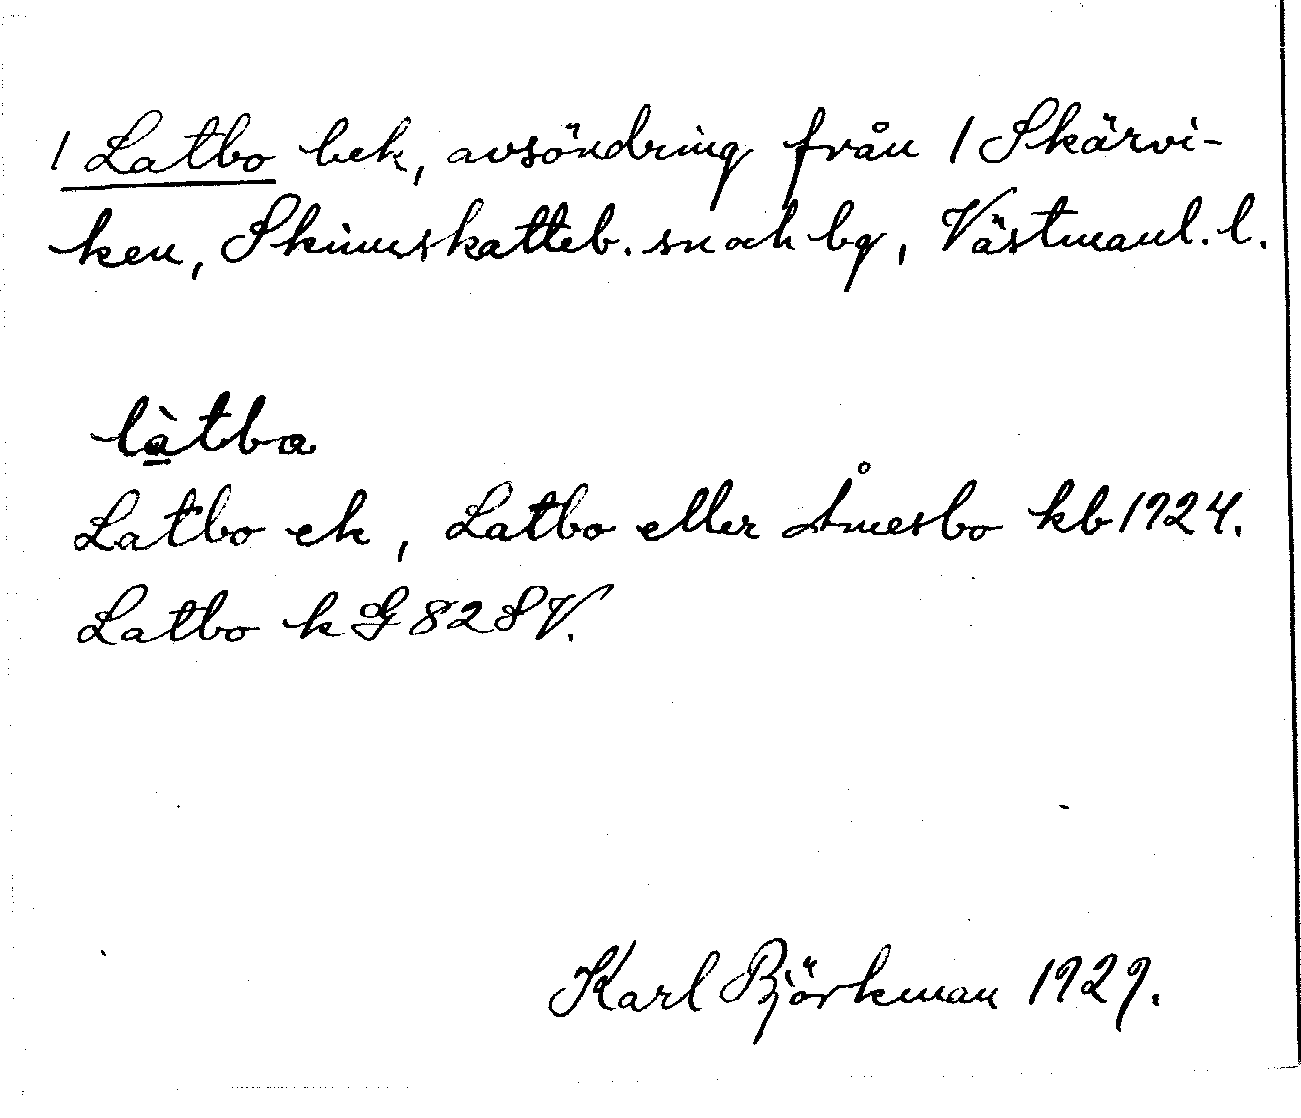 1 Latbo bek, avsöndring från 1 Skärvi-
ken, Skinnskatteb. sn och bg, Västmanl. l.
làtba
Latbo ek, Latbo eller Åmesbo kb 1924.
Latbo k G 82 SV.
Karl Björkman 1929.